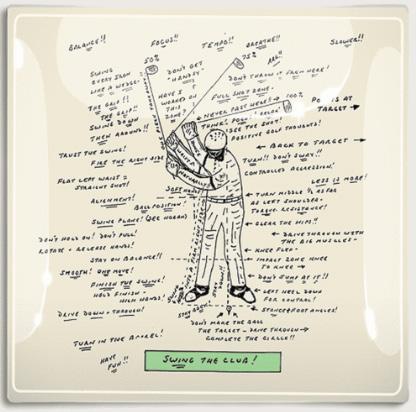 BALANCE!!
FOCUS!!
TEMPO!!
BREATHE!!
SLOWER!!
50%
75%
SWING
EVERY IRON
LIKE A WEDGE.
DON'T GET
"HANDSY"
DON'T THROW IT FROM HERE!
THE GRIP!!
THE GRIP
SWING DOWN
THEN AROUND!!
HAVE I
WORKED ON
THIS
ZONE?
FULL SHOT ZONE.
NEVER PAST HERE!!
100%
THINK!
RELAX
SEE THE SHOT!
POSITIVE GOLF THOUGHTS!
IS AT
TARGET
TRUST THE SWING!
BACK TO TARGET
FIRE THE RIGHT SIDE
TURN!! DON'T SWAY!!
CONTROLLED AGGRESSION!
FLAT LEFT WRIST =
STRAIGHT SHOT!
LESS IS MORE!
NATURALLY
ALIGNMENT!
BALL POSITION!
TURN MIDDLE ½ AS FAR
AS LEFT SHOULDER -
TORQUE. RESISTANCE!
SWING PLANE! (SEE HOGAN)
CLEAR THE HIPS!!
DON'T HOLD ON! DON'T PULL!
ROTATE + RELEASE HANDS!
DRIVE THROUGH WITH
THE BIG MUSCLES -
KNEE FLEX -
STAY ON BALANCE!!
IMPACT ZONE KNEE
TO KNEE
SMOOTH! ONE MOVE!
DON'T JUMP AT IT!!
FINISH THE SWING!
HOLD FINISH -
HIGH HANDS!
LEFT HEEL DOWN
FOR CONTROL!
DRIVE DOWN + THROUGH!
STANCE + FOOT ANGLES!
DON'T MAKE THE BALL
THE TARGET - DRIVE THROUGH -
COMPLETE THE CIRCLE!!
TURN IN THE BARREL!
HAVE
FUN!!
SWING THE CLUB!